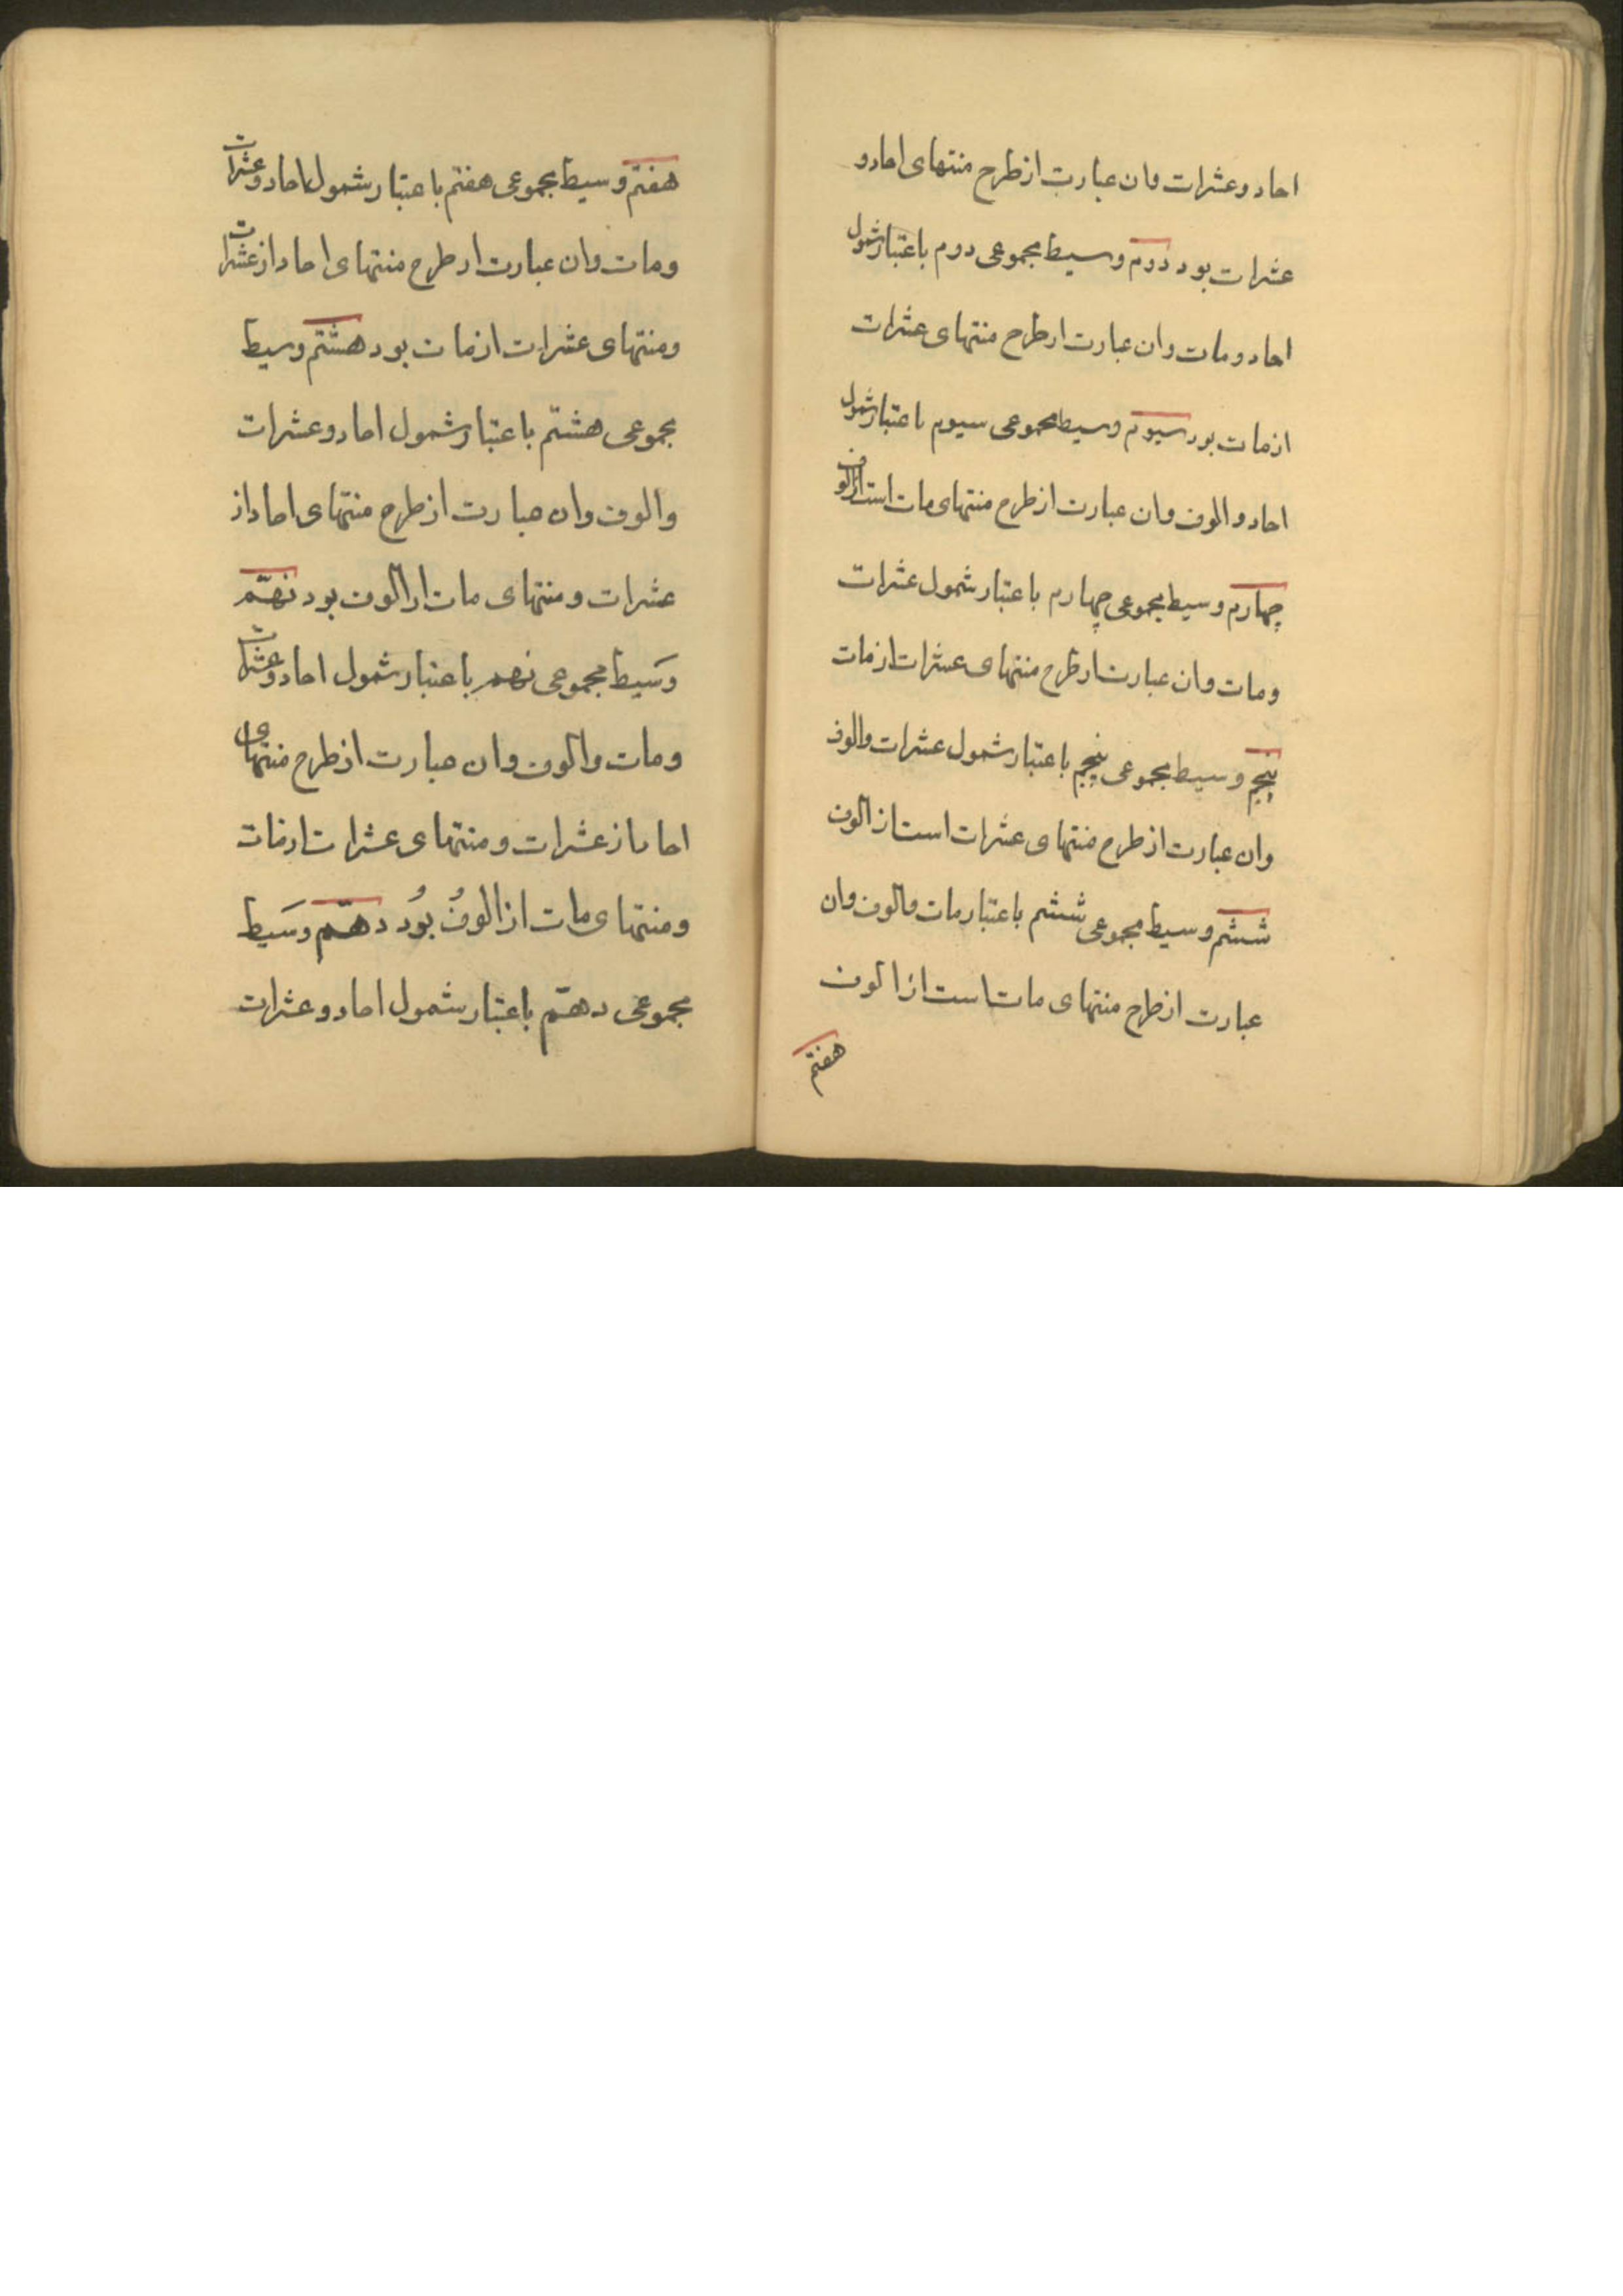 احاد و عشرات وان عبارت از طرح منتهای احاد و
عشرات بود دوم وسیط مجموعی دوم باعتبار شمول
احاد و مات وان عبارت از طرح منتهای عشرات
از مات بود سیوم وسیط مجموعی سیوم باعتبار شمول
احاد و الوف وان عبارت از طرح منتهای مات است از الوف
چهارم وسیط مجموعی چهارم باعتبار شمول عشرات
ومات وان عبارت از طرح منتهای عشرات از مات
پنجم وسیط مجموعی پنجم باعتبار شمول عشرات والوف
وان عبارت از طرح منتهای عشرات است از الوف
ششم وسیط مجموعی ششم باعتبار مات والوف وان
عبارت از طرح منتهای مات است از الوف
هفتم
هفتم وسیط مجموعی هفتم باعتبار شمول احاد وعشرات
ومات وان عبارت از طرح منتهای احاد از عشرات
ومنتهای عشرات از مات بود هشتم وسیط
مجموعی هشتم باعتبار شمول احاد وعشرات
والوف وان عبارت از طرح منتهای احاد از
عشرات ومنتهای مات از الوف بود نهم
وَسیط مجموعی نهم باعتبار شمول احاد وعشرات
ومات والوف وان عبارت از طرح منتهای
احاد از عشرات ومنتهای عشرات از مات
ومنتهای مات از الوفُ بوُد دهم وَسَیط
مجموعی دهم باعتبار شمول احاد وعشرات